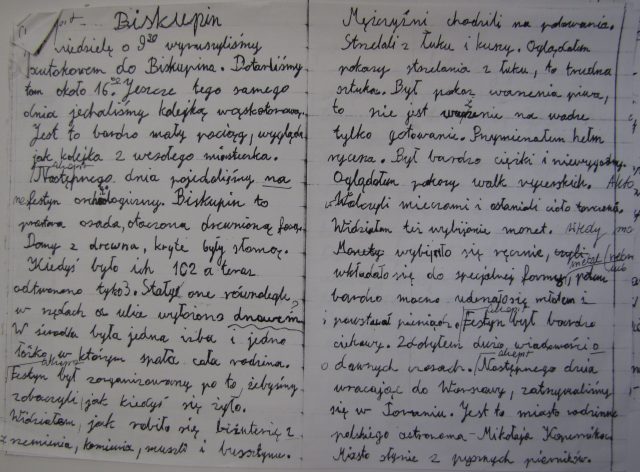 Biskupin
niedzielę o 9³⁰ wyruszyliśmy
autokarem do Biskupina. Dotarliśmy
tam około 16.⁰⁰ Jeszcze tego samego
dnia jechaliśmy kolejką wąskotorową.
Jest to bardzo mały pociąg, wygląda
jak kolejka z wesołego miasteczka.
akapit
Następnego dnia pojechaliśmy na
festyn archeologiczny. Biskupin to
prastara osada, otoczona drewnianą
Domy z drewna, kryte były słomą.
Kiedyś było ich 102 a teraz
odtworzono tylko 3. Stały one równolegle
w rzędach a ulice wyłożono drewnem
W środku była jedna izba i jedno
łóżko, w którym spała cała rodzina.
akapit
Festyn był zorganizowany po to, żebyśmy
zobaczyli, jak kiedyś się żyło.
Widziałam, jak robiło się biżuterię z
rzemienia, kamienia, muszli i bursztynu.
Mężczyźni chodzili na polowania.
Strzelali z łuku i kuszy. Oglądałam
pokazy strzelania z łuku, to trudna
sztuka. Był pokaz warzenia piwa,
to nie jest ważenie na wadze
tylko gotowanie. Przymierzałam hełm
rycerza. Był bardzo ciężki i niewygodny.
Oglądałam pokazy walk rycerskich.
Walczyli mieczami i osłaniali ciało tarczami.
Widziałam też wybijanie monet.
Monety wybijało się ręcznie, czyli
metal
wkładało się do specjalnej formy, potem
bardzo mocno uderzało się młotem i
akapit
powstawał pieniądz. Festyn był bardzo
ciekawy. Zdobyłam dużo wiadomości o
akapit
dawnych czasach. Następnego dnia
wracając do Warszawy, zatrzymaliśmy
się w Toruniu. Jest to miasto rodzinne
polskiego astronoma - Mikołaja Kopernika.
Miasto słynie z pysznych pierników.